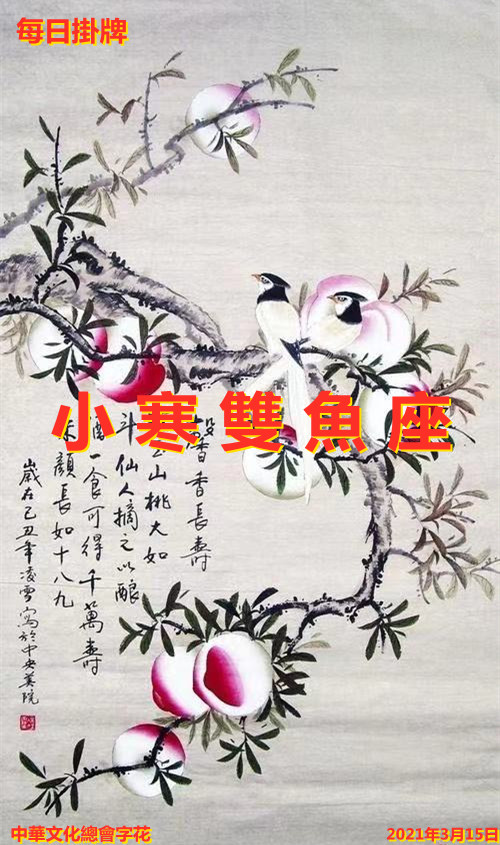 每日掛牌
小寒雙魚座
馨香長壽
山桃大如
斗仙人摘之以釀
酒一食可得千萬壽
朱顏長如十八九
歲在己丑年凌雪寫於中央美院
中華文化總會字花
2021年3月15日